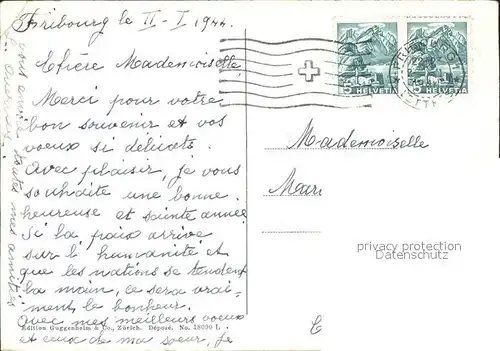 Fribourg le II-I 1944.
Chère Mademoiselle
Merci pour votre
bon souvenir et vos
voeux si délicats.
Avec plaisir, je vous
souhaite une bonne
heureuse et sainte année
Si la paix arrive
sur l'humanité et
que les nations se tendent
la main, ce sera vrai=
ment le bonheur.
Avec mes meilleurs voeux
et ceux de ma soeur, je
vous envoie toutes mes amitiés
Edition Guggenheim & Co., Zürich. Déposé. No. 18090 L
5 HELVETIA
5 HELVETIA
Mademoiselle
privacy protection
Datenschutz